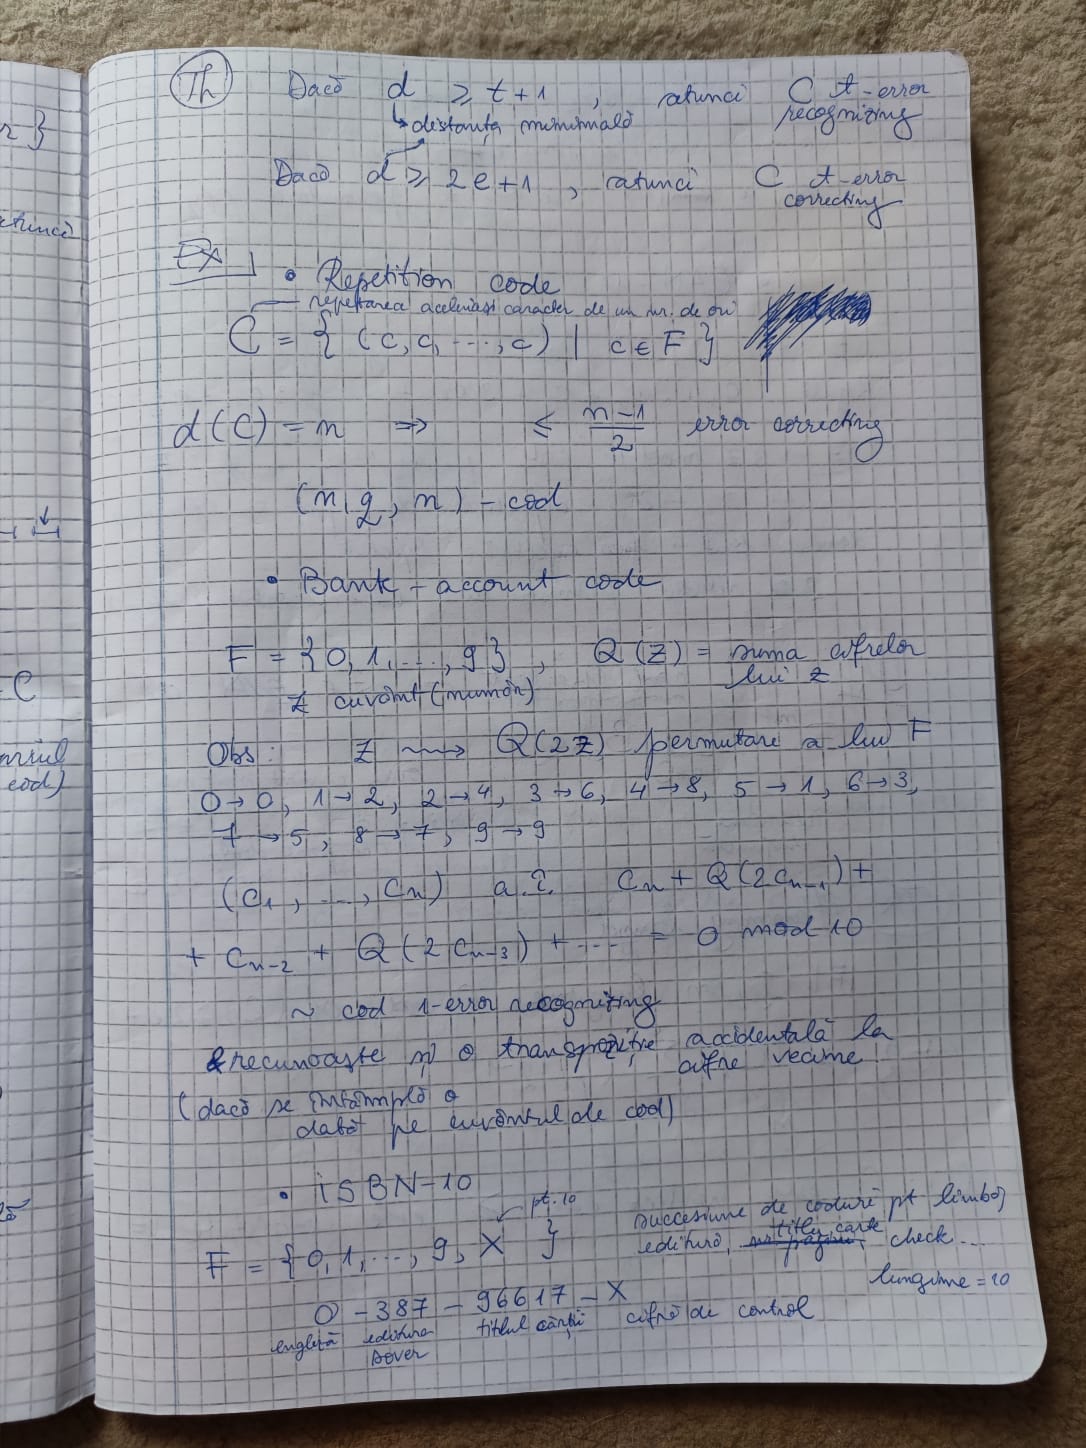 r }
atunci
C
cod)
Th Dacă d ≥ t+1 , atunci C t-error recognizing
↳ distanța minimală
Dacă d ≥ 2e+1 , atunci C t-error correcting
Ex 1 • Repetition code
repetarea aceluiași caracter de un nr. de ori
C = { (c, c, ..., c) | c ∈ F }
d(C) = n ⇒ ≤ (n-1)/2 error correcting
(n, q, n) - cod
• Bank-account code
F = {0, 1, ..., 9} , Q(Z) = suma cifrelor lui z
z cuvânt (număr)
Obs: Z ⟿ Q(2z) permutare a lui F
0→0, 1→2, 2→4, 3→6, 4→8, 5→1, 6→3,
7→5, 8→7, 9→9
(c₁, ..., cₙ) a.î. cₙ + Q(2cₙ₋₁) +
+ cₙ₋₂ + Q(2cₙ₋₃) + ... = 0 mod 10
~ cod 1-error recognizing
& recunoaște și o transpoziție accidentală la cifre vecine!
(dacă se întâmplă o
dată pe cuvântul de cod)
• ISBN-10
pt. 10
F = {0, 1, ..., 9, X }
succesiune de coduri pt limbă,
editură, titlu carte, check...
lungime = 10
0 - 387 - 96617 - X
engleză editura Dover titlul cărții cifră de control